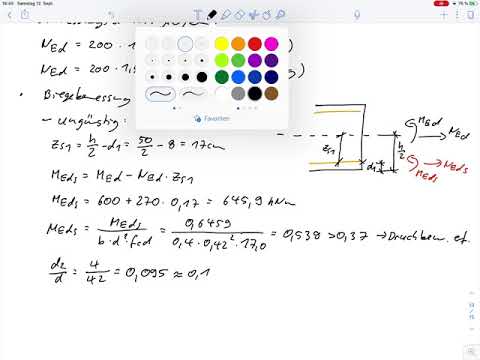 14:49 Samstag 12. Sept.
76 %
NEd = 200 · 1
NEd = 200 · 1,
Favoriten
• Biegebemessung
– Ungünstig:
zs1 = h/2 - d1 = 50/2 - 8 = 17cm
MEds = MEd - NEd · zs1
MEds = 600 + 270 · 0,17 = 645,9 kNm
MEds = MEds / b · d² · fcd = 0,6459 / 0,4 · 0,42² · 17,0 = 0,538 > 0,37 → Druckbew. ef.
d2/d = 4/42 = 0,095 ≈ 0,1
MEd
NEd
zs1
h/2
d1
NEds
MEds